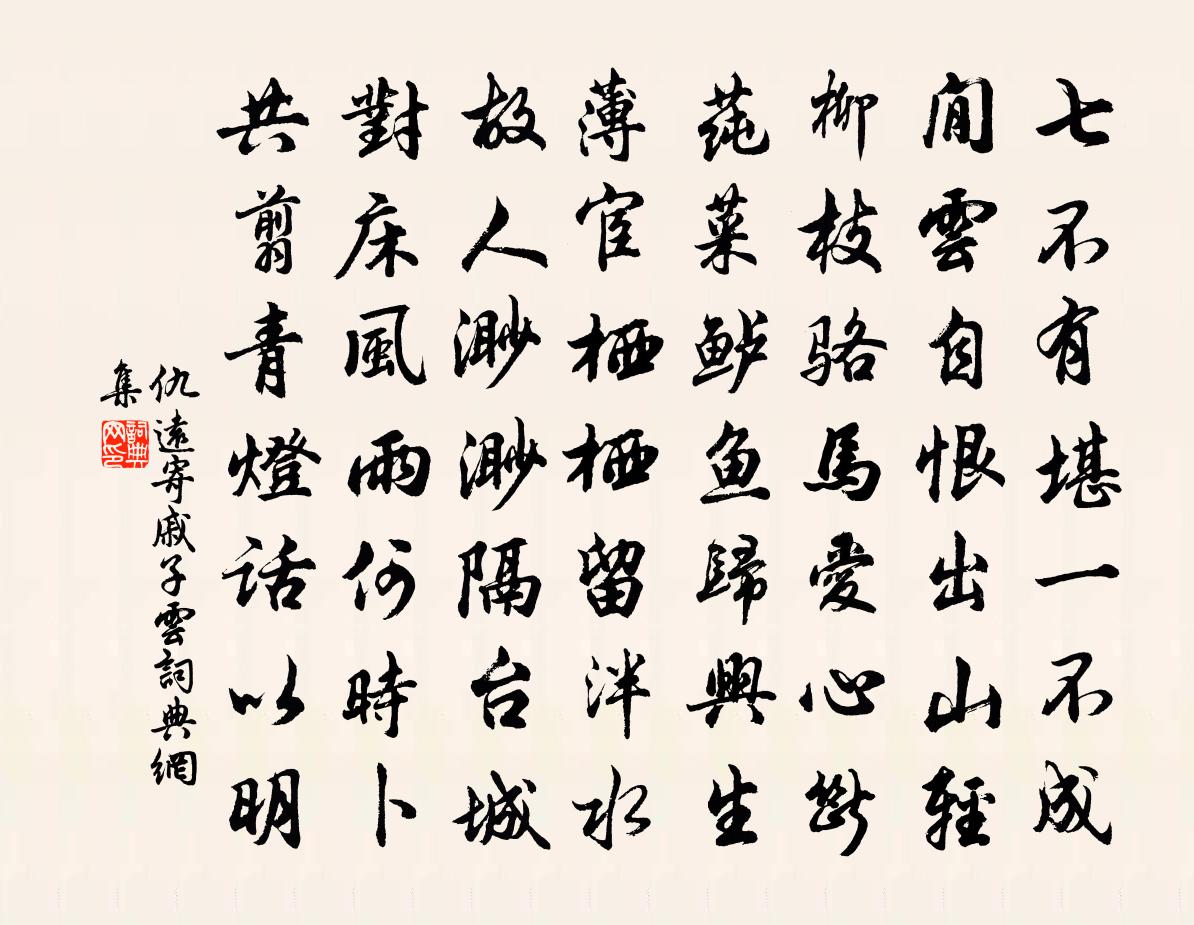 七不有堪一不成
閒雲自恨出山輕
柳枝骆馬愛心斷
莼菜鲈魚歸興生
薄宦栖栖留泮水
故人渺渺隔台城
對床風雨何時卜
共翦青燈話以明
仇遠寄戚子雲詞典網
集
詞典
网印